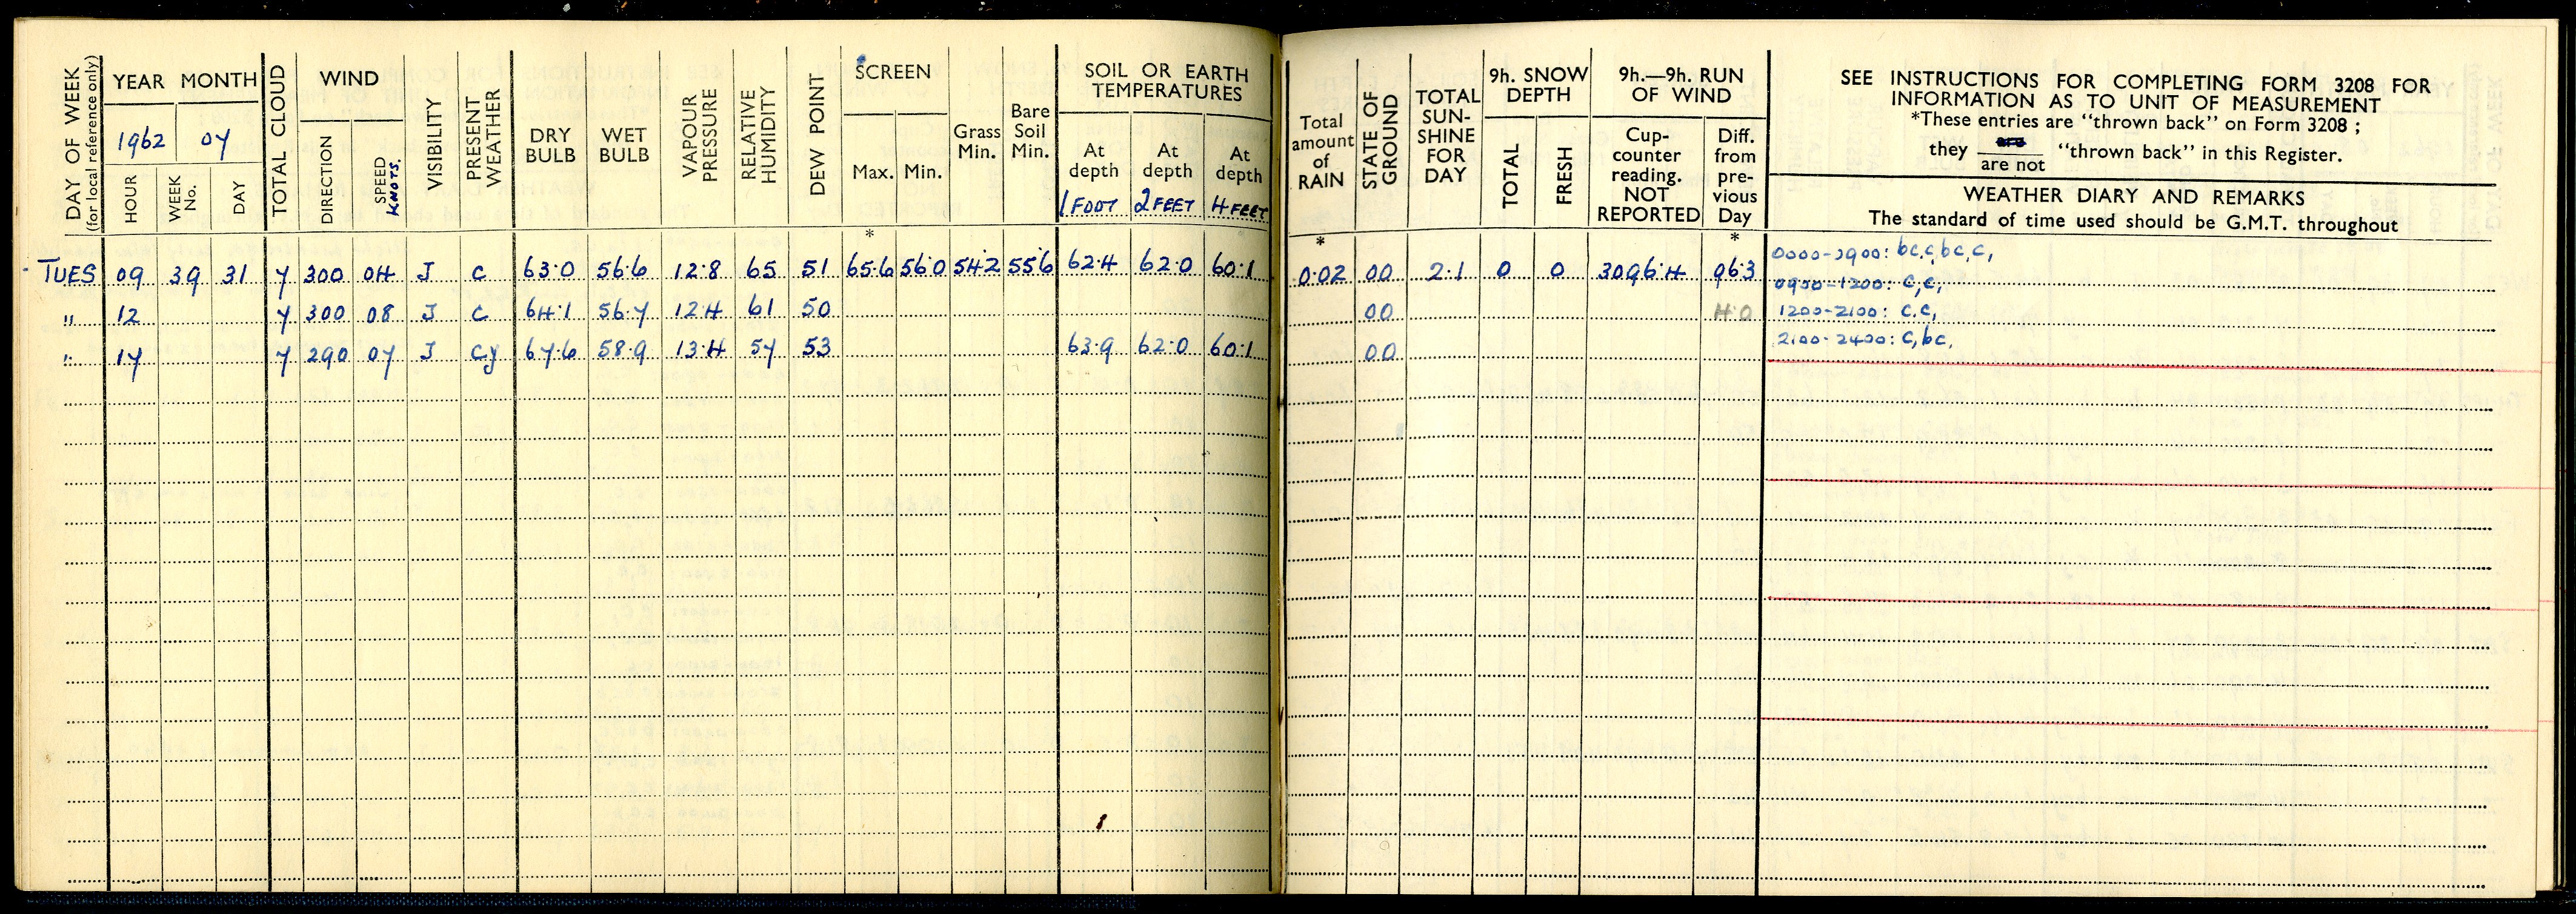 DAY OF WEEK
(for local reference only)
YEAR MONTH
1962 07
HOUR
WEEK No.
DAY
TOTAL CLOUD
WIND
DIRECTION
SPEED
KNOTS.
VISIBILITY
PRESENT WEATHER
DRY BULB
WET BULB
VAPOUR PRESSURE
RELATIVE HUMIDITY
DEW POINT
SCREEN
Max. Min.
*
Grass Min.
Bare Soil Min.
SOIL OR EARTH TEMPERATURES
At depth 1 FOOT
At depth 2 FEET
At depth 4 FEET
Total amount of RAIN
*
STATE OF GROUND
TOTAL SUN-SHINE FOR DAY
9h. SNOW DEPTH
TOTAL
FRESH
9h.—9h. RUN OF WIND
Cup-counter reading. NOT REPORTED
Diff. from pre-vious Day
*
SEE INSTRUCTIONS FOR COMPLETING FORM 3208 FOR
INFORMATION AS TO UNIT OF MEASUREMENT
*These entries are "thrown back" on Form 3208 ;
they are / are not "thrown back" in this Register.
WEATHER DIARY AND REMARKS
The standard of time used should be G.M.T. throughout
TUES 09 39 31 7 300 04 J c 63.0 56.6 12.8 65 51 65.6 56.0 54.2 55.6 62.4 62.0 60.1 0.02 00 2.1 0 0 3096.4 96.3 0000-0900: bc,c,bc,c,
0900-1200: c,c,
" 12 7 300 08 J c 64.1 56.7 12.4 61 50 00 4.0 1200-2100: c.c,
" 17 7 290 07 J cy 67.6 58.9 13.4 57 53 63.9 62.0 60.1 00 2100-2400: c,bc.